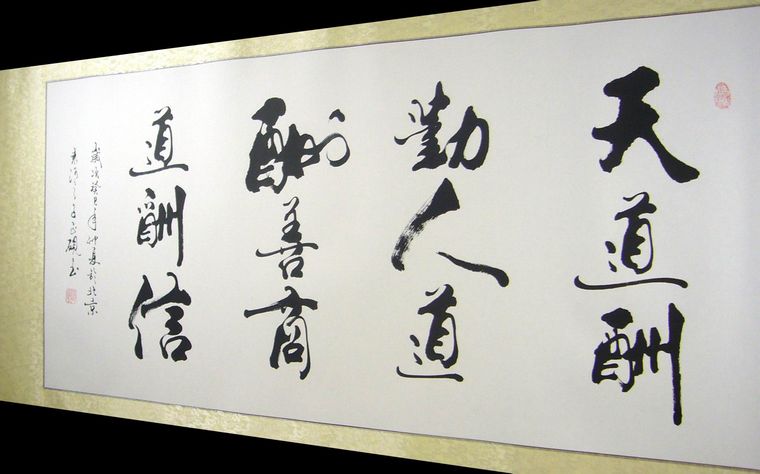 天道酬
勤人道
酬善商
道酬信
歲次癸巳年仲夏於北京